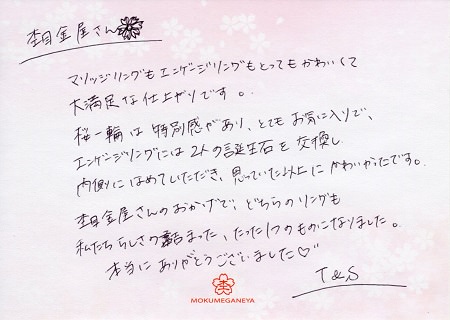 杢目金屋さん
マリッジリングもエンゲージリングもとってもかわいくて
大満足な仕上がりです。
桜一輪は特別感があり、とてもお気に入りで、
エンゲージリングには2人の誕生石を交換し
内側にはめていただき、思っていた以上にかわいかったです。
杢目金屋さんのおかげで、どちらのリングも
私たちらしさの詰まった、たった1つのものになりました。
本当にありがとうございました♡
T&S
MOKUMEGANEYA